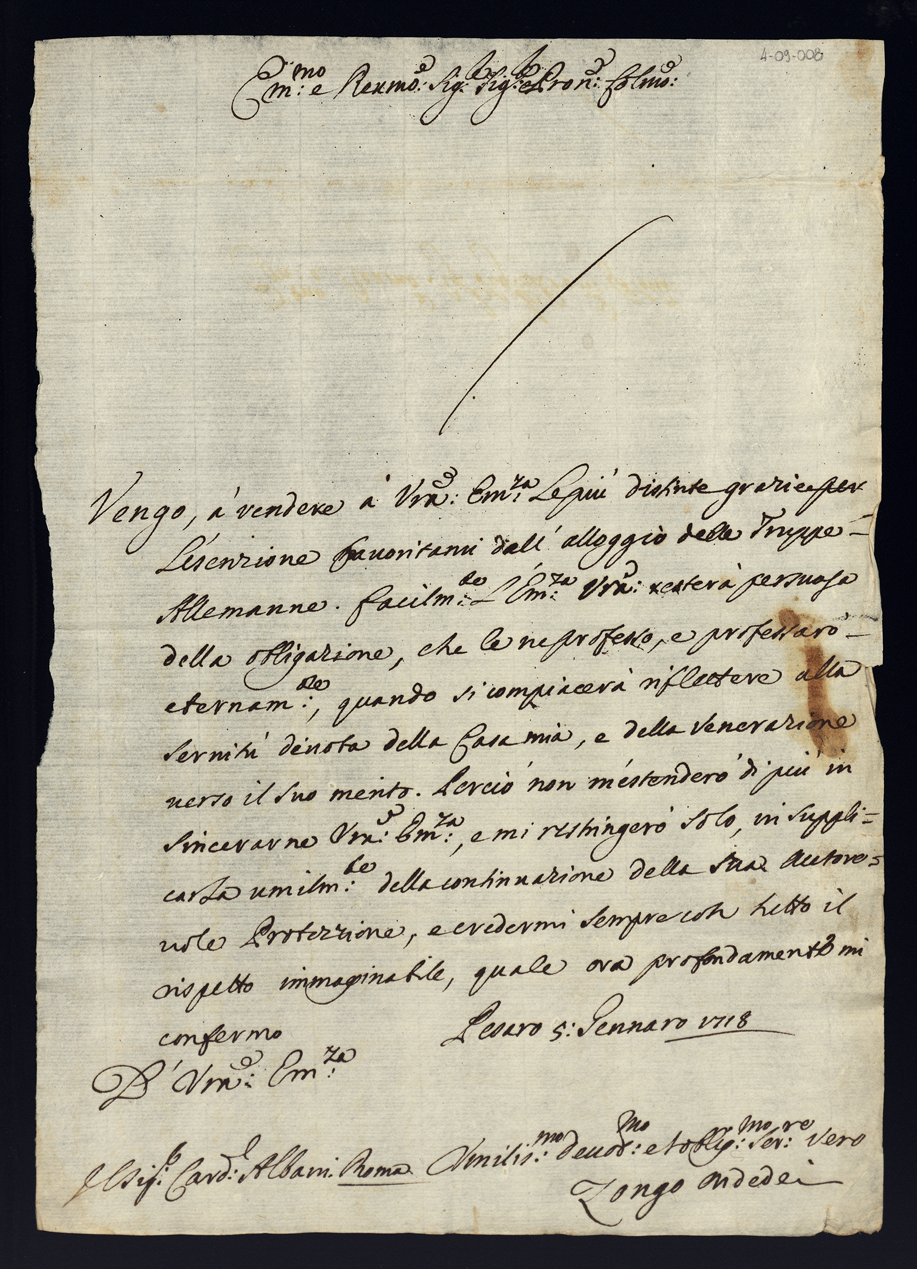 4-09-008
Em:mo e Reumo: Sig:r Sig:r e Pron: Colmo:
Vengo, á rendere á Vrã: Em:za Le più distinte grazie per
L'esenzione favoritami dall' alloggio delle Truppe =
Allemanne. Facilm:te L'Em:za Vrã: resterà persuasa
della obligazione, che le ne professo, e professarò =
eternam:te, quando si compiacerà riflettere alla
servitù devota della Casa mia, e della venerazione
verso il suo merito. Perciò non m'estenderò di più in
sincerarne Vrã: Em:za, e mi restringerò solo, in suppli=
carla umilm:te della continuazione della Sua Autore=
vole Protezzione, e credermi sempre con tutto il
rispetto immaginabile, quale ora profondamente mi
confermo Pesaro 5: Gennaro 1718
D' Vrã: Em:za
Il Sig:r Card:l Albani. Roma Umilis:mo Devot:mo et obblig:mo Ser:re vero
Zongo Ondedei